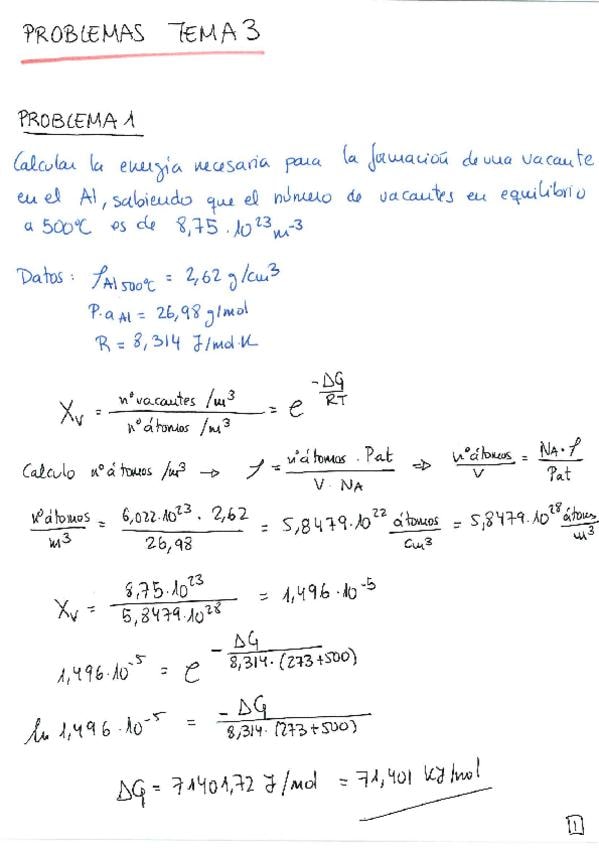 PROBLEMAS TEMA 3
PROBLEMA 1
Calcular la energía necesaria para la formación de una vacante
en el Al, sabiendo que el número de vacantes en equilibrio
a 500ºC es de 8,75·10²³ m⁻³
Datos: ρ Al 500ºC = 2,62 g/cm³
P.a Al = 26,98 g/mol
R = 8,314 J/mol·K
Xv = nº vacantes /m³ / nº átomos /m³ = e^(-ΔG/RT)
Calculo nº átomos /m³ → ρ = nº átomos · Pat / V · NA ⇒ nº átomos / V = NA · ρ / Pat
nº átomos / m³ = 6,022·10²³ · 2,62 / 26,98 = 5,8479·10²² átomos / cm³ = 5,8479·10²⁸ átomos / m³
Xv = 8,75·10²³ / 5,8479·10²⁸ = 1,496·10⁻⁵
1,496·10⁻⁵ = e^(-ΔG / 8,314·(273+500))
ln 1,496·10⁻⁵ = -ΔG / 8,314·(273+500)
ΔG = 71401,72 J/mol = 71,401 kJ/mol
1